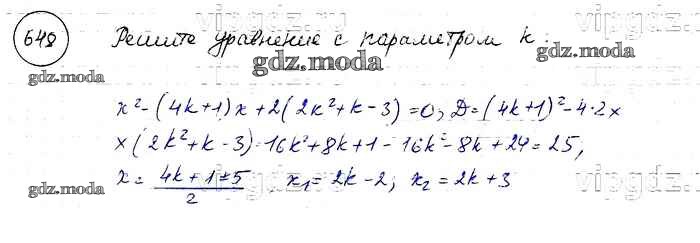 649 Решите уравнение с параметром k:
gdz.moda gdz.moda gdz.moda
x² - (4k+1)x + 2(2k²+k-3) = 0, D = (4k+1)² - 4·2×
×(2k²+k-3) = 16k²+8k+1-16k²-8k+24 = 25,
x = (4k+1±5)/2, x₁ = 2k-2; x₂ = 2k+3
gdz.moda gdz.moda gdz.moda